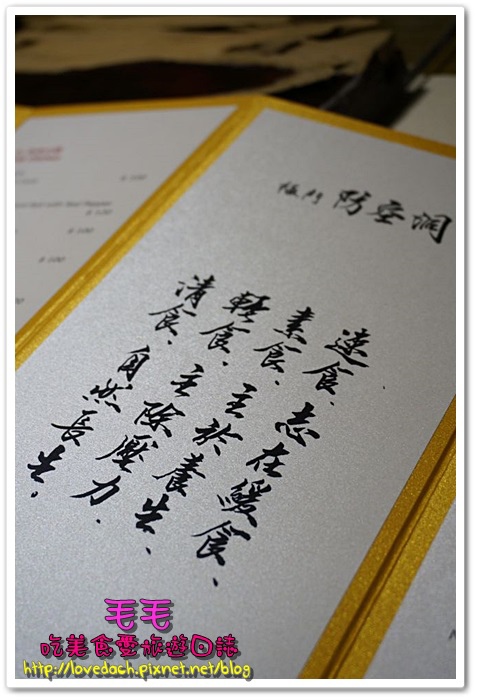 防空洞
速食、志在緩食、
素食、主於養生、
輕食、主除壓力.
清食、自然長生.
毛毛
吃美食愛旅遊日誌
http://lovedach.pixnet.net/blog